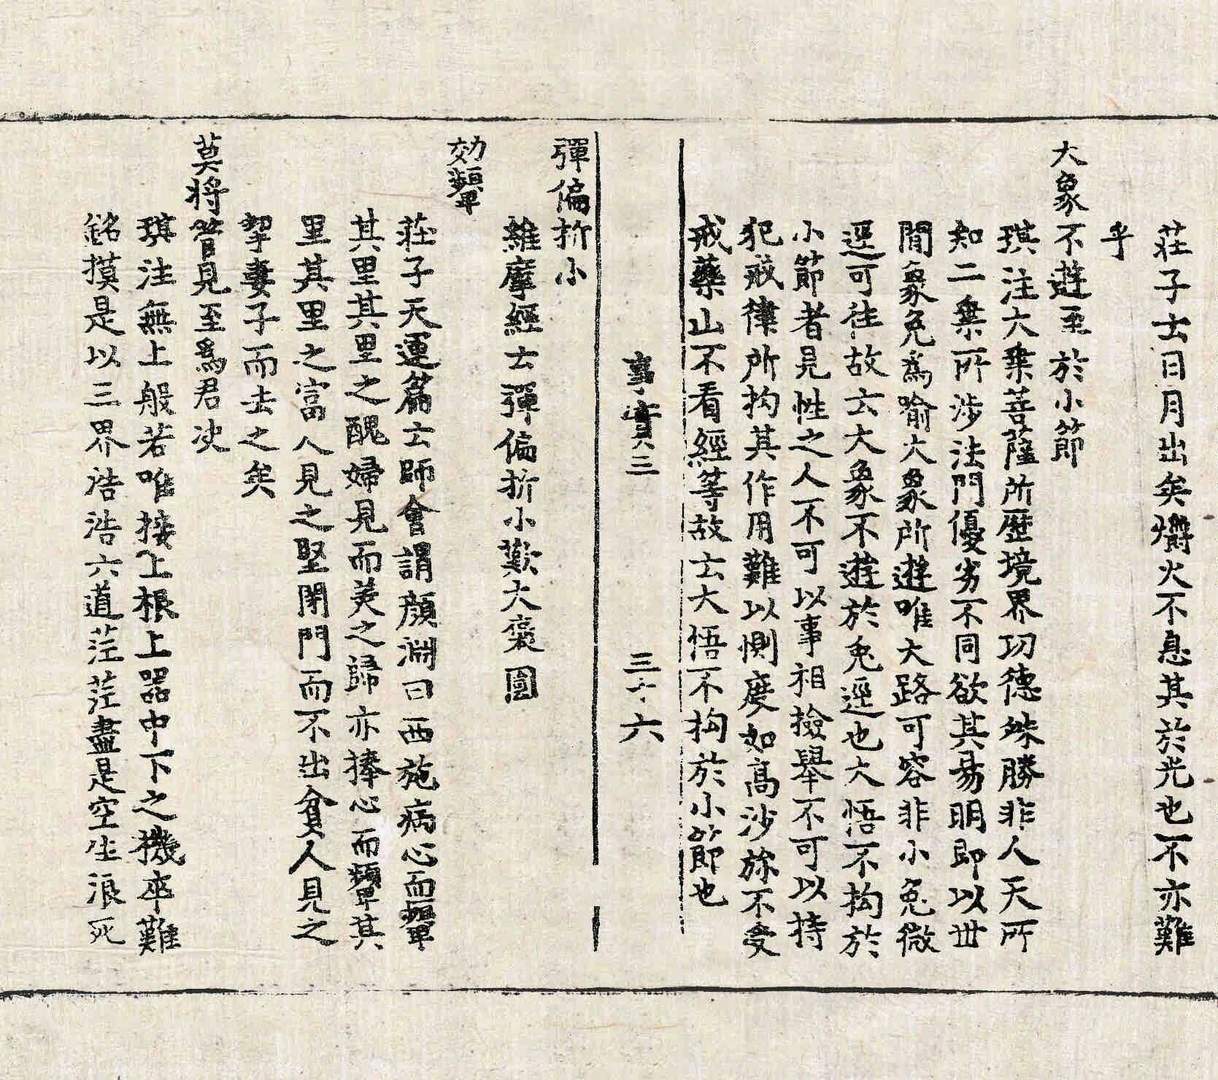 莊子士日月出矣爝火不息其於光也不亦難
乎
大象不遊至於小節
琪注六乗菩薩所歷境界功德殊勝非人天所
知二乗所涉法門優劣不同欲其易明即以世
間象兔爲喻大象所遊唯大路可容非小兔微
逕可往故去大象不遊於兔逕也大悟不拘於
小節者見性之人不可以事相撿舉不可以持
犯戒律所拘其作用難以惻度如高沙弥不受
戒藥山不看經等故士大悟不拘於小節也
事實三 三十六
彈偏折小
維摩經士彈偏折小歎大褒圓
効顰
莊子天運篇士師會謂顔淵曰西施病心而顰
其里其里之醜婦見而美之歸亦捧心而顰其
里其里之富人見之堅閉門而不出貧人見之
挈妻子而去之矣
莫將管見至爲君决
琪注無上般若唯接上根上器中下之機卒難
銘摸是以三界浩浩六道茫茫盡是空生浪死